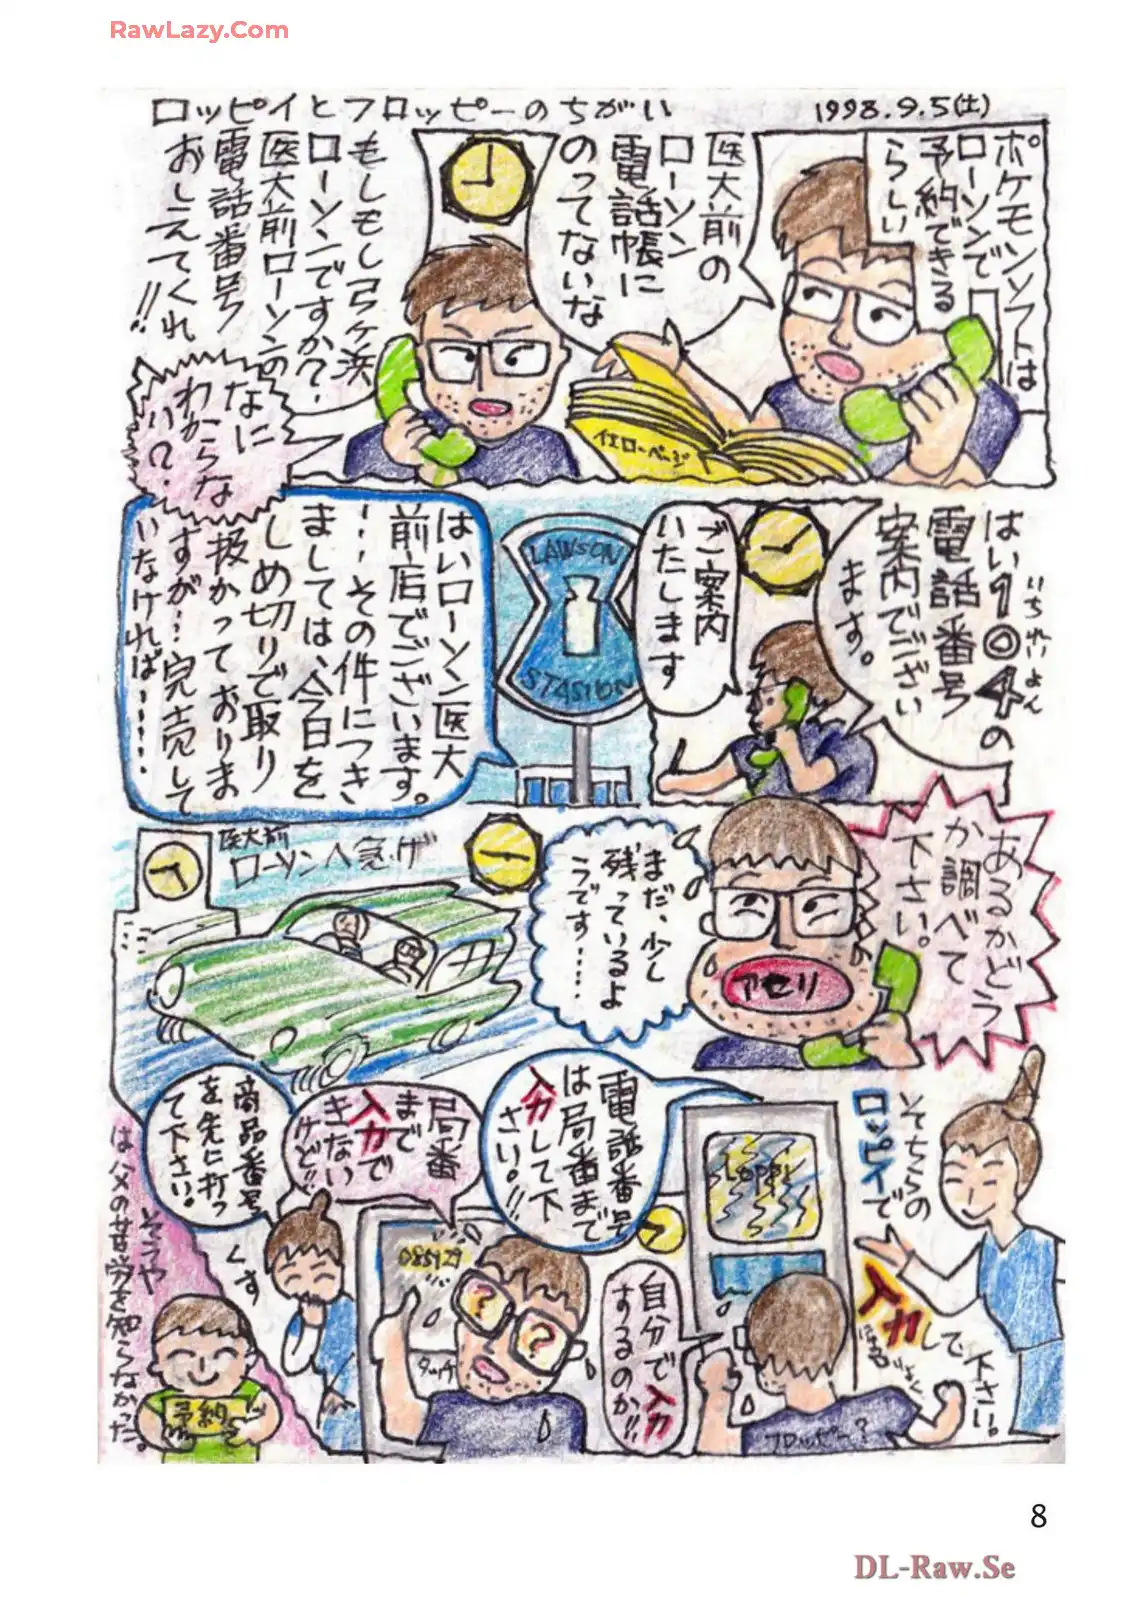 RawLazy.Com
ロッピイとフロッピーのちがい
1998.9.5(土)
ポケモンソフトは
ローソンで
予約できる
らしい
医大前の
ローソン
電話帳に
のってないな
イエローページ
もしもし弓ヶ浜
ローソンですか?
医大前ローソンの
電話番号
おしえてくれ!!
なに
わからな
い?
はい104の
いちれいよん
電話番号
案内でござい
ます。
ご案内
いたします
LAWSON
STASION
はいローソン医大
前店でございます。
…その件につき
ましては、今日を
しめ切りで取り
扱かっておりま
すが…完売して
いなければ……
あるかどう
か調べて
下さい。
アセリ
まだ、少し
残っているよ
うです……
医大前
ローソンへ急げ
そちらの
ロッピイで
入力して
下さい。
Loppi
フロッピー?
自分で入力
するのか!!
電話番号
は局番まで
入力して下
さい。!!
局番
まで
入力で
きない
けど!!
085929
タッチ
商品番号
を先に打っ
て下さい。
くす
そうや
はハメの苦労を知らなかった。
予約
8
DL-Raw.Se